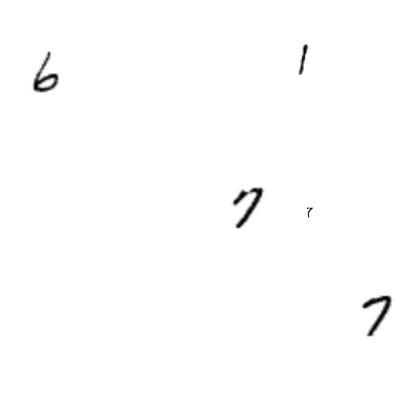 6 1
7 7
7